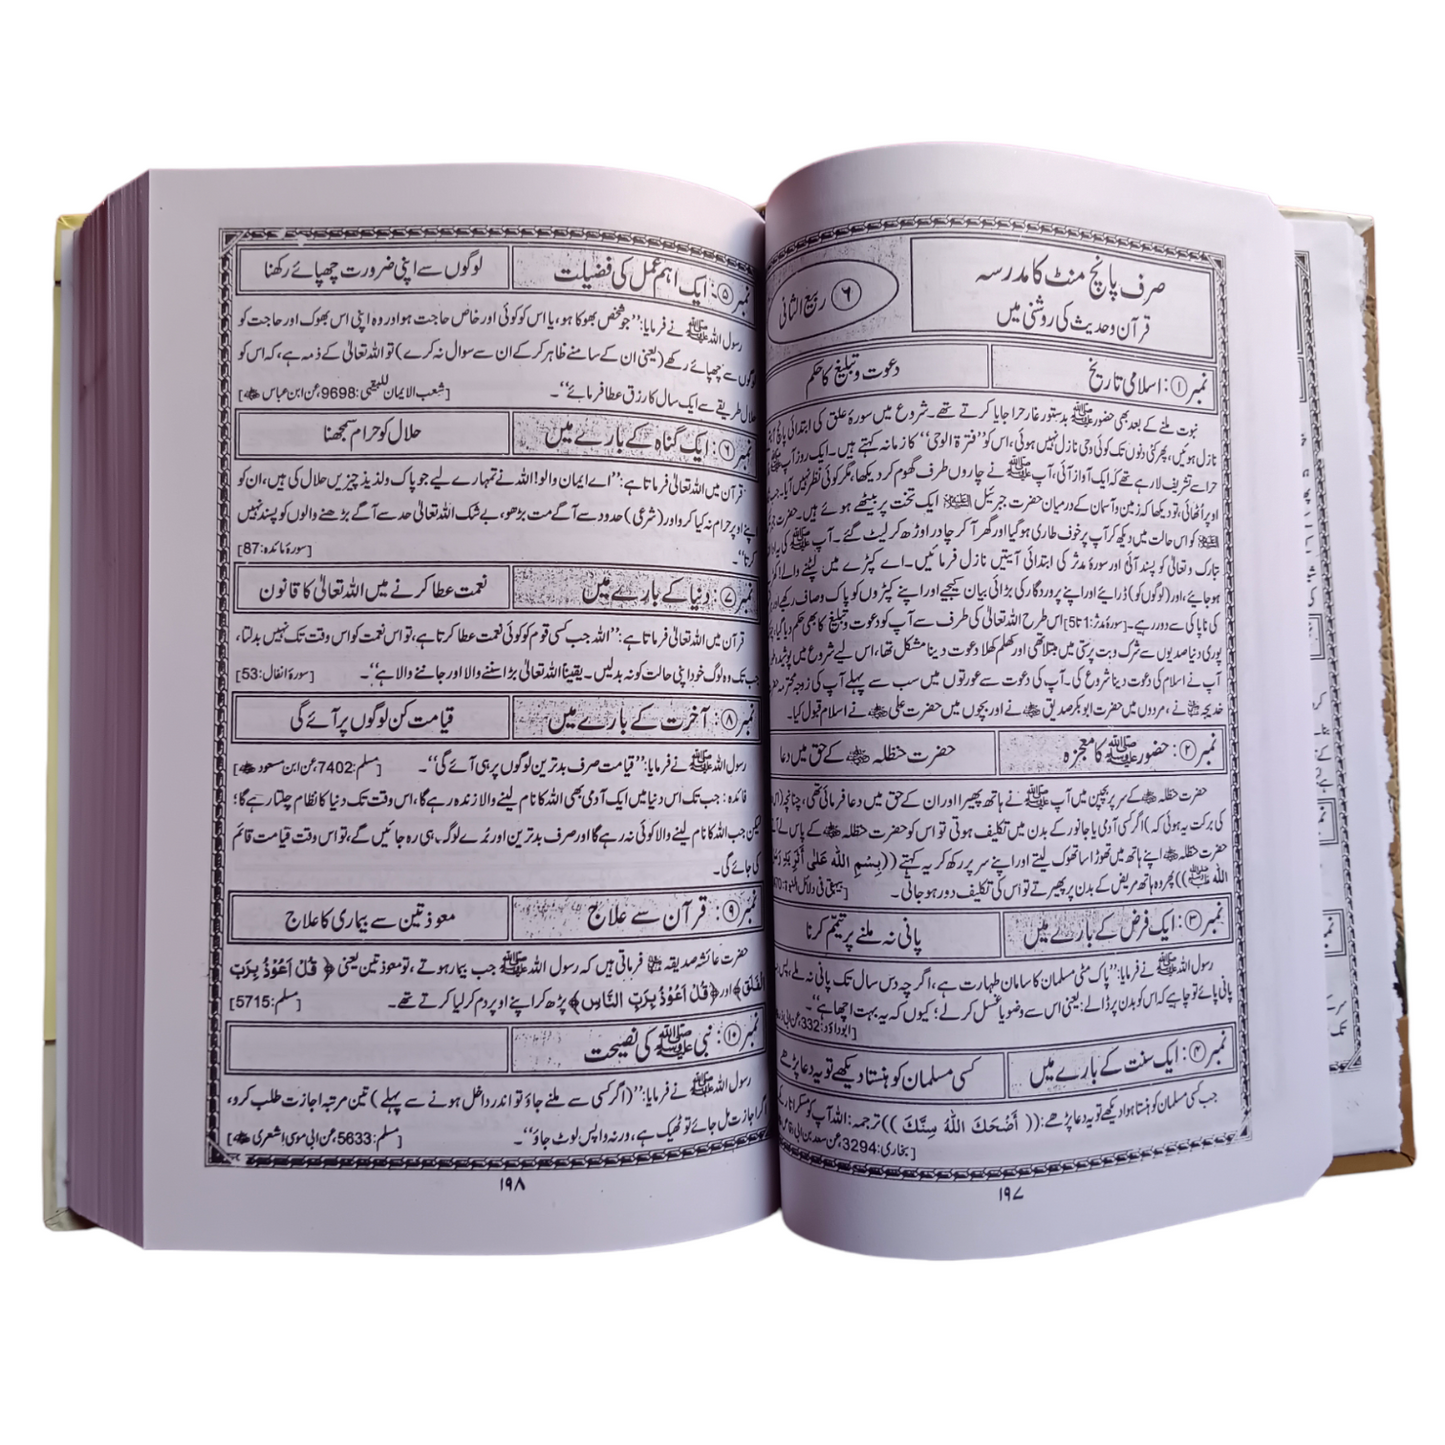 صرف پانچ منٹ کا مدرسہ
قرآن و حدیث کی روشنی میں
۶ ربیع الثانی
نمبر ①: اسلامی تاریخ
دعوت و تبلیغ کا حکم
نبوت ملنے کے بعد بھی حضورﷺ بدستور غار حرا جایا کرتے تھے۔ شروع میں سورۂ علق کی ابتدائی پانچ
نازل ہوئیں، پھر کئی دنوں تک کوئی وحی نازل نہیں ہوئی، اس کو ”فترۃ الوحی“ کا زمانہ کہتے ہیں۔ ایک روز آپ
حرا سے تشریف لا رہے تھے کہ ایک آواز آئی، آپﷺ نے چاروں طرف گھوم کر دیکھا، مگر کوئی نظر نہیں آیا۔ جب
اوپر اُٹھائی، تو دیکھا کہ زمین و آسمان کے درمیان حضرت جبرئیل علیہ السلام ایک تخت پر بیٹھے ہوئے ہیں۔ حضرت
علیہ السلام کو اس حالت میں دیکھ کر آپ پر خوف طاری ہوگیا اور گھر آکر چادر اوڑھ کر لیٹ گئے۔ آپﷺ کی یہ
تبارک و تعالیٰ کو پسند آئی اور سورۂ مدثر کی ابتدائی آیتیں نازل فرمائیں۔ اے کپڑے میں لپٹنے والے!
ہو جائیے، اور (لوگوں کو) ڈرائیے اور اپنے پروردگار کی بڑائی بیان کیجیے اور اپنے کپڑوں کو پاک و صاف رکھیے اور
کی ناپاکی سے دور رہیے۔ [سورۂ مدثر: 1 تا 5] اس طرح اللہ تعالیٰ کی طرف سے آپ کو دعوت و تبلیغ کا بھی حکم دیا گیا،
پوری دنیا صدیوں سے شرک و بت پرستی میں مبتلا تھی اور کھلم کھلا دعوت دینا مشکل تھا، اس لیے شروع میں پوشیدہ
آپ نے اسلام کی دعوت دینا شروع کی۔ آپ کی دعوت سے عورتوں میں سب سے پہلے آپ کی زوجہ محترمہ
خدیجہ رضی اللہ عنہا نے، مردوں میں حضرت ابوبکر صدیق رضی اللہ عنہ نے اور بچوں میں حضرت علی رضی اللہ عنہ نے اسلام قبول کیا۔
نمبر ②: حضورﷺ کا معجزہ
حضرت حنظلہ رضی اللہ عنہ کے حق میں دعا
حضرت حنظلہ رضی اللہ عنہ کے سر پر بچپن میں آپﷺ نے ہاتھ پھیرا اور ان کے حق میں دعا فرمائی تھی، چنانچہ
کی برکت یہ ہوئی کہ) اگر کسی آدمی یا جانور کے بدن میں تکلیف ہوتی تو اس کو حضرت حنظلہ رضی اللہ عنہ کے پاس لے آتے
حضرت حنظلہ رضی اللہ عنہ اپنے ہاتھ میں تھوڑا سا تھوک لیتے اور اپنے سر پر رکھ کر یہ کہتے ((بِسْمِ اللهِ عَلٰى أَثَرِ يَدِ
اللهِ ﷺ)) پھر وہ ہاتھ مریض کے بدن پر پھیرتے تو اس کی تکلیف دور ہو جاتی۔ [بیہقی فی دلائل النبوۃ
نمبر ③: ایک فرض کے بارے میں
پانی نہ ملنے پر تیمّم کرنا
رسول اللہﷺ نے فرمایا: ”پاک مٹی مسلمان کا سامان طہارت ہے، اگرچہ دس سال تک پانی نہ ملے،
پانی پائے تو چاہیے کہ اس کو بدن پر ڈالے: یعنی اس سے وضو یا غسل کرلے؛ کیوں کہ یہ بہت اچھا ہے“۔
[ابوداؤد: 332، عن ابی ذر
نمبر ④: ایک سنت کے بارے میں
کسی مسلمان کو ہنستا دیکھے تو یہ دعا پڑھے
جب کسی مسلمان کو ہنستا ہوا دیکھے تو یہ دعا پڑھے: (( أَضْحَكَ اللهُ سِنَّكَ )) ترجمہ: اللہ آپ کو مسکراتا
[بخاری: 3294، عن سعد بن ابی وقاص
۱۹۷
نمبر ⑤: ایک اہم عمل کی فضیلت
لوگوں سے اپنی ضرورت چھپائے رکھنا
رسول اللہﷺ نے فرمایا: ”جو شخص بھوکا ہو، یا اس کو کوئی اور خاص حاجت ہو اور وہ اپنی اس بھوک اور حاجت کو
لوگوں سے چھپائے رکھے (یعنی ان کے سامنے ظاہر کرکے ان سے سوال نہ کرے) تو اللہ تعالیٰ کے ذمہ ہے، کہ اس کو
حلال طریقے سے ایک سال کا رزق عطا فرمائے“۔
[شعب الایمان للبیہقی: 9698، عن ابن عباس رضی اللہ عنہ]
نمبر ⑥: ایک گناہ کے بارے میں
حلال کو حرام سمجھنا
قرآن میں اللہ تعالیٰ فرماتا ہے: ”اے ایمان والو! اللہ نے تمہارے لیے جو پاک و لذیذ چیزیں حلال کی ہیں، ان کو
اپنے اوپر حرام نہ کیا کرو اور (شرعی) حدود سے آگے مت بڑھو، بے شک اللہ تعالیٰ حد سے آگے بڑھنے والوں کو پسند نہیں
کرتا“۔
[سورۂ مائدہ: 87]
نمبر ⑦: دنیا کے بارے میں
نعمت عطا کرنے میں اللہ تعالیٰ کا قانون
قرآن میں اللہ تعالیٰ فرماتا ہے: ”اللہ جب کسی قوم کو کوئی نعمت عطا کرتا ہے، تو اس نعمت کو اس وقت تک نہیں بدلتا،
جب تک وہ لوگ خود اپنی حالت کو نہ بدلیں۔ یقیناً اللہ تعالیٰ بڑا سننے والا اور جاننے والا ہے“۔
[سورۂ انفال: 53]
نمبر ⑧: آخرت کے بارے میں
قیامت کن لوگوں پر آئے گی
رسول اللہﷺ نے فرمایا: ”قیامت صرف بدترین لوگوں پر ہی آئے گی“۔
[مسلم: 7402، عن ابن مسعود رضی اللہ عنہ]
فائدہ: جب تک اس دنیا میں ایک آدمی بھی اللہ کا نام لینے والا زندہ رہے گا، اس وقت تک دنیا کا نظام چلتا رہے گا؛
لیکن جب اللہ کا نام لینے والا کوئی نہ رہے گا اور صرف بدترین اور بُرے لوگ ہی رہ جائیں گے، تو اس وقت قیامت قائم
کی جائے گی۔
نمبر ⑨: قرآن سے علاج
معوذتین سے بیماری کا علاج
حضرت عائشہ صدیقہ رضی اللہ عنہا فرماتی ہیں کہ رسول اللہﷺ جب بیمار ہوتے، تو معوذتین یعنی ﴿ قُلْ اَعُوْذُ بِرَبِّ
الْفَلَقِ﴾ اور ﴿قُلْ اَعُوْذُ بِرَبِّ النَّاسِ﴾ پڑھ کر اپنے اوپر دم کر لیا کرتے تھے۔
[مسلم: 5715]
نمبر ⑩: نبیﷺ کی نصیحت
رسول اللہﷺ نے فرمایا: ”(اگر کسی سے ملنے جاؤ تو اندر داخل ہونے سے پہلے) تین مرتبہ اجازت طلب کرو،
اگر اجازت مل جائے تو ٹھیک ہے، ورنہ واپس لوٹ جاؤ“۔
[مسلم: 5633، عن ابی موسیٰ اشعری رضی اللہ عنہ]
۱۹۸